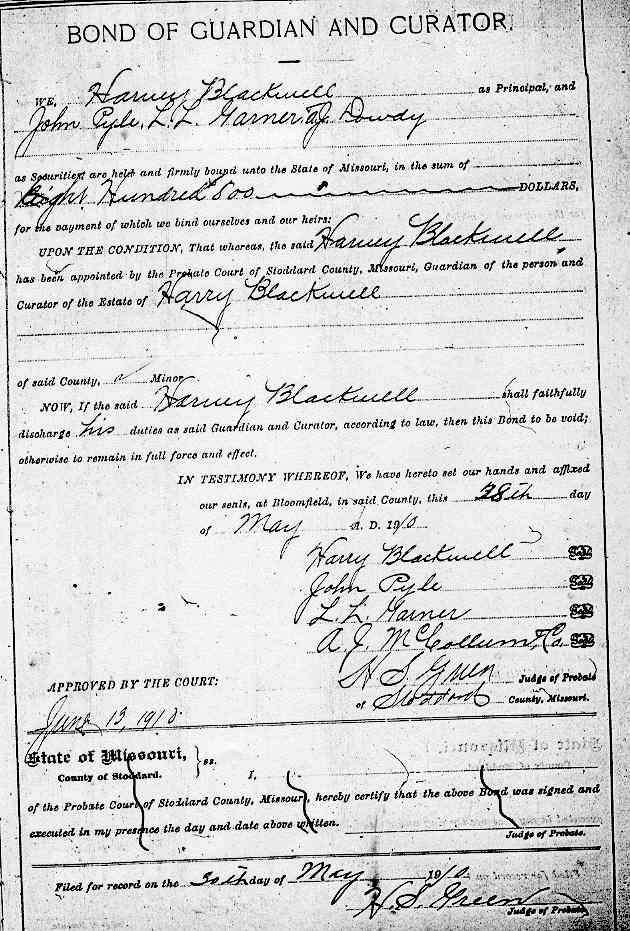 BOND OF GUARDIAN AND CURATOR.
WE, Harvey Blackwell as Principal, and
John Pyle, L. L. Garner, Dowdy
as Securities, are held and firmly bound unto the State of Missouri, in the sum of
Eight Hundred 800 DOLLARS,
for the payment of which we bind ourselves and our heirs:
UPON THE CONDITION, That whereas, the said Harvey Blackwell
has been appointed by the Probate Court of Stoddard County, Missouri, Guardian of the person and
Curator of the Estate of Harry Blackwell
of said County, Minor
NOW, If the said Harvey Blackwell shall faithfully
discharge his duties as said Guardian and Curator, according to law, then this Bond to be void;
otherwise to remain in full force and effect.
IN TESTIMONY WHEREOF, We have hereto set our hands and affixed
our seals, at Bloomfield, in said County, this 28th day
of May A. D. 1910
Harry Blackwell Seal
John Pyle Seal
L. L. Garner Seal
A. J. McCollum, Co. Seal
H S Green Judge of Probate
APPROVED BY THE COURT: of Stoddard County, Missouri.
June 13, 1910.
State of Missouri, } ss.
County of Stoddard. I,
of the Probate Court of Stoddard County, Missouri, hereby certify that the above Bond was signed and
executed in my presence the day and date above written.
Judge of Probate.
Filed for record on the 30th day of May 1910
H. S. Green
Judge of Probate